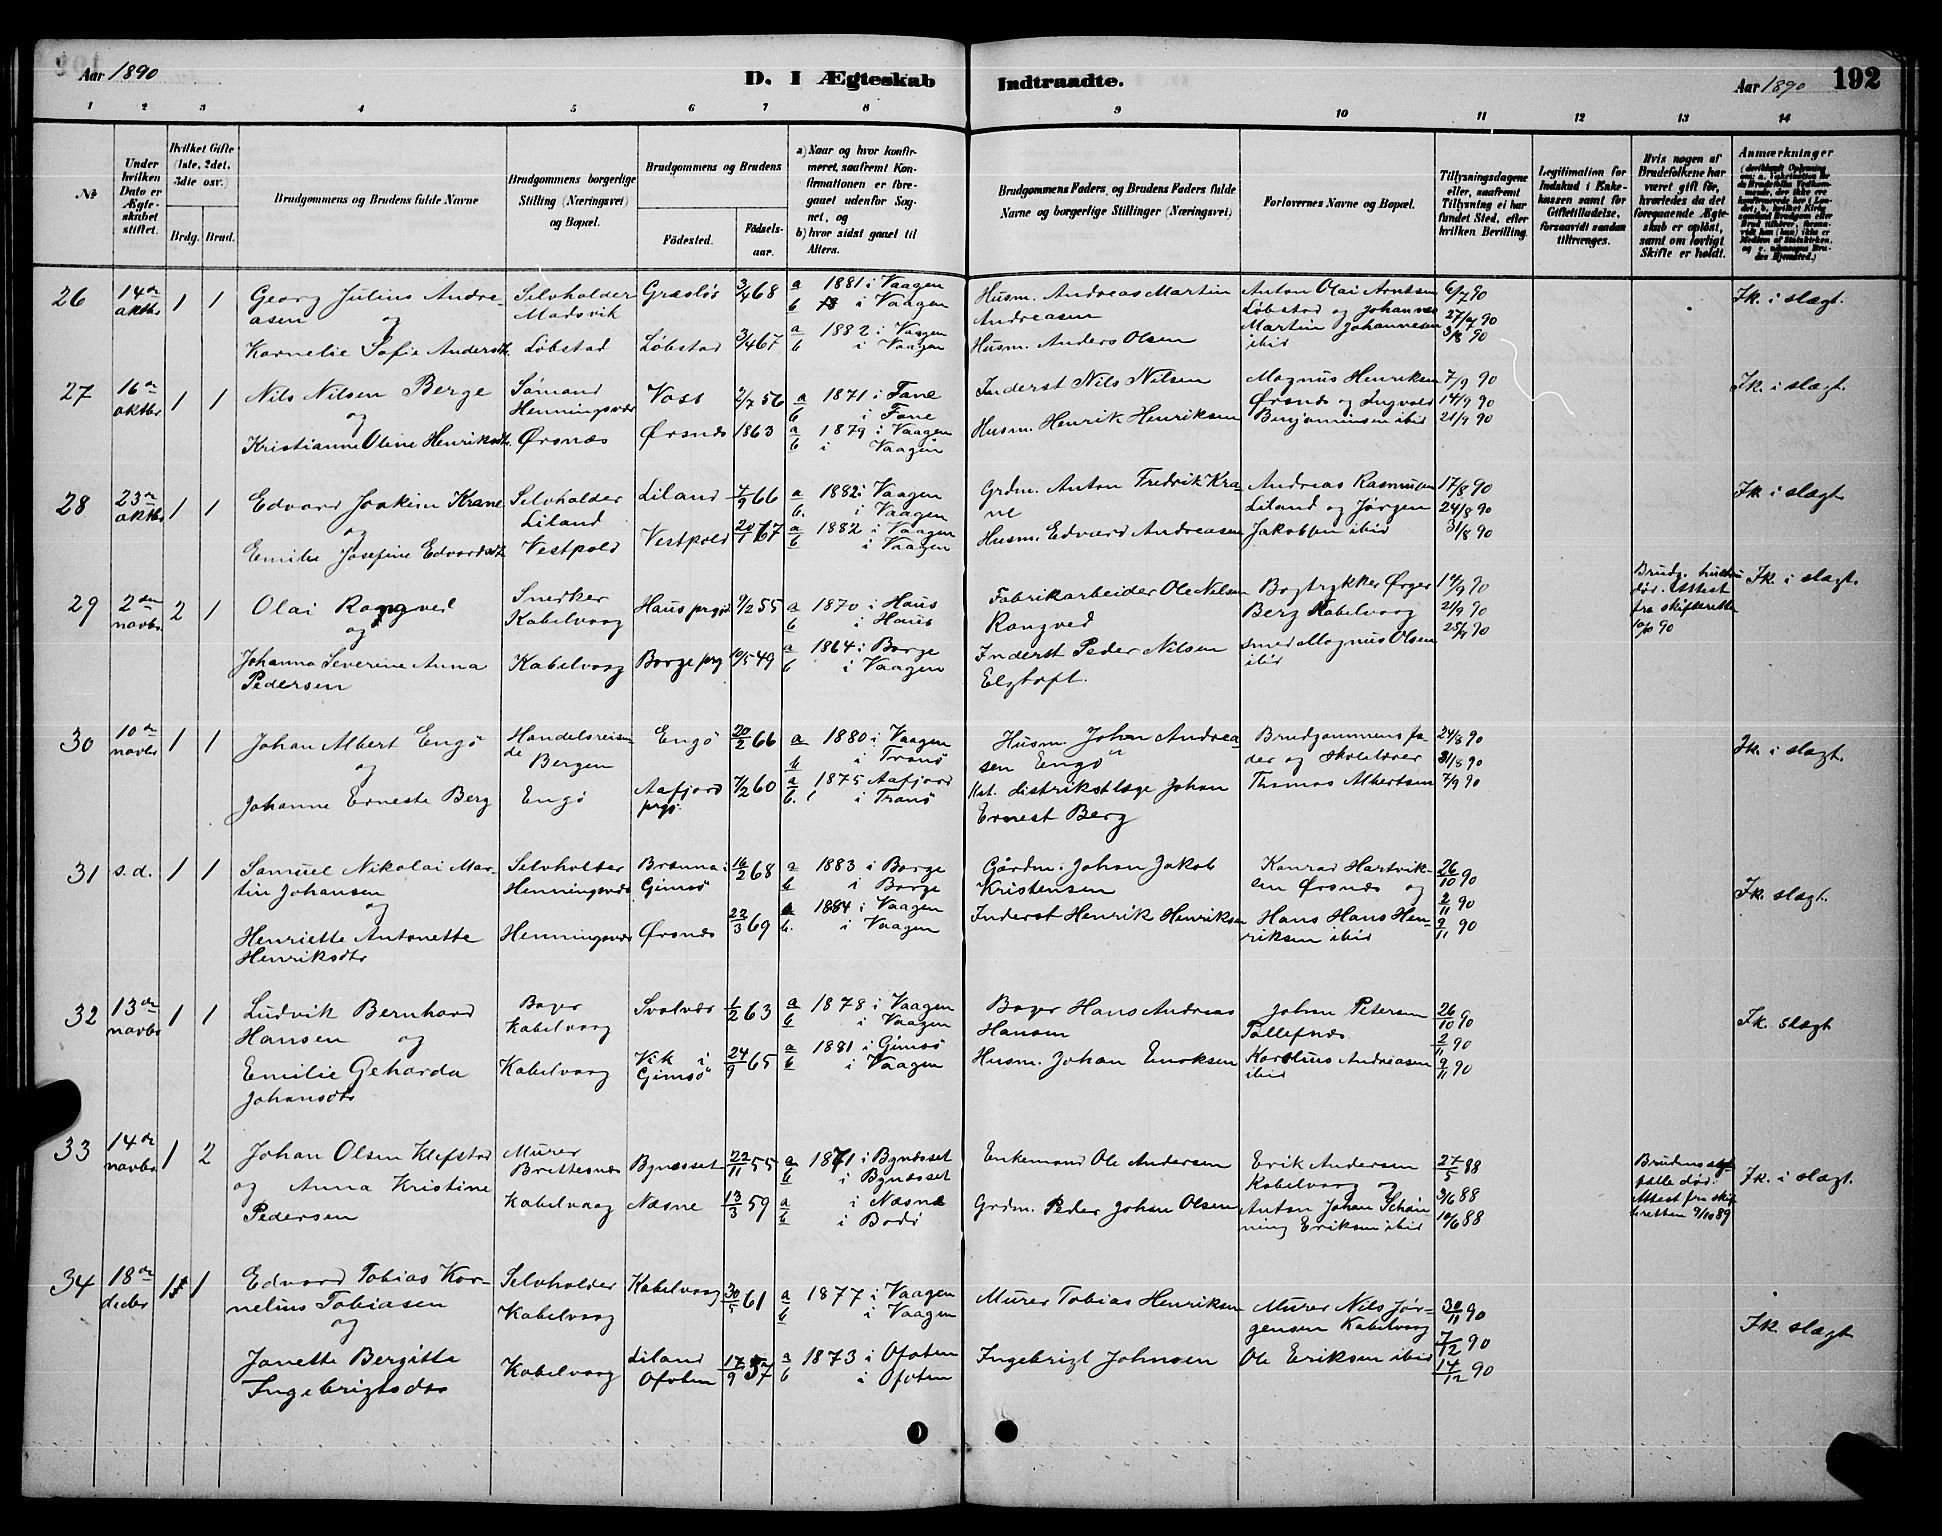 Aar 1890
D. I Ægteskab
Indtraadte.
Aar 1890
192
1 2 3 4 5 6 7 8 9 10 11 12 13 14
№
Under hvilken Dato er Ægteskabet stiftet.
Hvilket Gifte (1ste, 2det, 3die osv.)
Brdg. Brud.
Brudgommens og Brudens fulde Navne
Brudgommens borgerlige Stilling (Næringsvei) og Bopæl.
Brudgommens og Brudens
Fødested.
Fødselsaar.
a) Naar og hvor konfirmeret, saafremt Konfirmationen er foregaaet udenfor Sognet, og
b) hvor sidst gaaet til Alters.
Brudgommens Faders og Brudens Faders fulde Navne og borgerlige Stillinger (Næringsvei)
Forlovernes Navne og Bopæl.
Tillysningsdagene eller, saafremt Tillysning ei har fundet Sted, efter hvilken Bevilling.
Legitimation for Indskud i Enkekassen samt for Giftetilladelse, forsaavidt saadan tiltrænges.
Hvis nogen af Brudefolkene har været gift før, hvorledes da det foregaaende Ægteskab er opløst, samt om lovligt Skifte er holdt.
Anmærkninger
26 14de oktbr 1 1 Georg Julius Andreasen og Selvholder Madsvik Græsløs 3/4 68 a 1881 i Vaagen b i Vaagen Husm. Andreas Martin Andreasen Anton Olai Arntsen Løbstad og Johannes Martin Johannesen ibid 6/7 90 27/7 90 3/8 90 Fk. i slægt.
Kornelie Sofie Andersdtr. Løbstad Løbstad 3/4 67 a 1882 i Vaagen b i Vaagen Husm. Anders Olsen
27 16de oktbr 1 1 Nils Nilsen Berge og Sømand Henningsvær Voss 2/7 56 a 1871 i Fane b i Fane Inderst Nils Nilsen Magnus Henriksen Ørsnes og Ingvald Benjaminsen ibid 7/9 90 14/9 90 21/9 90 Fk. i slægt.
Kristianne Oline Henriksdtr. Ørsnæs Ørsnæs 1863 a 1879 i Vaagen b i Vaagen Husm. Henrik Henriksen
28 23de oktbr 1 1 Edvard Joakim Krane og Selvholder Liland Liland 7/9 66 a 1882 i Vaagen b. i Vaagen Grdm. Anton Fredrik Krane Andreas Rasmussen Liland og Jørgen Jakobsen ibid 17/8 90 24/8 90 31/8 90 Fk. i slægt.
Emilie Josefine Edvardsdtr Vestpold Vestpold 20/1 67 a 1882 i Vaagen b i Vaagen Husm. Edvard Andreasen
29 2den novbr 2 1 Olai Rongved og Snedker Kabelvaag Haus prgj 9/2 55 a 1870 i Haus b i Haus Fabrikarbeider Ole Nilsen Rongved Bogtrykker Ørger Berg Kabelvaag Smed Magnus Olsen ibid 14/9 90 21/9 90 28/9 90 Brudg. hustru død. Attest fra skifteretten 10/10 90 Fk. i slægt.
Johanna Severine Anna Pedersen Kabelvaag Borge prgj 10/5 49 a 1864 i Borge b i Vaagen Inderst Peder Nilsen Elgtoft.
30 10de novbr 1 1 Johan Albert Engø og Handelsreisende Bergen Engø 20/2 66 a 1880 i Vaagen b i Tranø Husm. Johan Andreasen Engø Brudgommens fader og Skolelærer Thomas Albertsen 24/8 90 31/8 90 7/9 90 Fk. i slægt.
Johanne Erneste Berg Engø Aafjord prgj. 7/2 60 a 1875 Aafjord b. i Tranø Kst. distriktslæge Johan Ernest Berg
31 s.d. 1 1 Samuel Nikolai Martin Johansen og Selvholder Henningsvær Brenna i Gimsø 16/2 68 a 1883 i Borge b i Borge Gårdm. Johan Jakob Kristensen Konrad Hartviksen Ørsnæs og Hans Hans Henriksen ibid 26/10 90 2/11 90 9/11 90 Fk. slægt.
Henriette Antonette Henriksdtr Henningsvær Ørsnæs 22/3 69 a 1884 i Vaagen b. i Vaagen Inderst Henrik Henriksen
32 13de novbr 1 1 Ludvik Bernhard Hansen og Bager Kabelvaag Svolvær 1/2 63 a 1878 i Vaagen b i Vaagen Bager Hans Andreas Hansen Johan Petersen Karolius Andreasen ibid 26/10 90 2/11 90 9/11 90 Fk. slægt
Emilie Geharda Johansdtr Kabelvaag Vik i Gimsø 24/9 65 a 1881 i Gimsø b i Vaagen Husm. Johan Enoksen
33 14de novbr 1 2 Johan Olsen Klefstad Murer Brettesnæs Bynæsset 22/11 55 a 1871 i Bynæsset b i Bynæsset Enkemand Ole Andersen Erik Andersen Kabelvaag og Anton Johan Schønning Eriksen ibid 27/5 88 3/6 88 10/6 88 Brudens ægtefælle død. Attest fra skifteretten 9/10 89 Fk. i slægt.
og Anna Kristine Pedersen Kabelvaag Næsne 13/3 59 a i Næsne b i Bodø Grdm. Peder Johan Olsen
34 18de decbr 1 1 Edvard Tobias Kornelius Tobiasen og Selvholder Kabelvaag Kabelvaag 30/5 61 a 1877 i Vaagen b i Vaagen Murer Tobias Henriksen Murer Nils Jørgensen Kabelvaag Ole Eriksen ibid 30/11 90 7/12 90 14/12 90 Fk. slægt
Janette Bergitte Ingebrigtsdtr Kabelvaag Liland Ofoten 17/9 57 a 1873 i Ofoten b i Ofoten Ingebrigt Johnsen